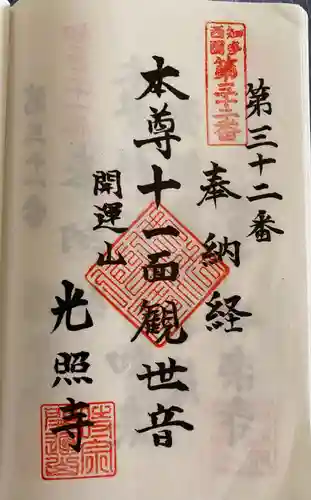 知多
西國
第三十二番
第三十二番
奉納経
本尊十一面觀世音
開運山
光照寺